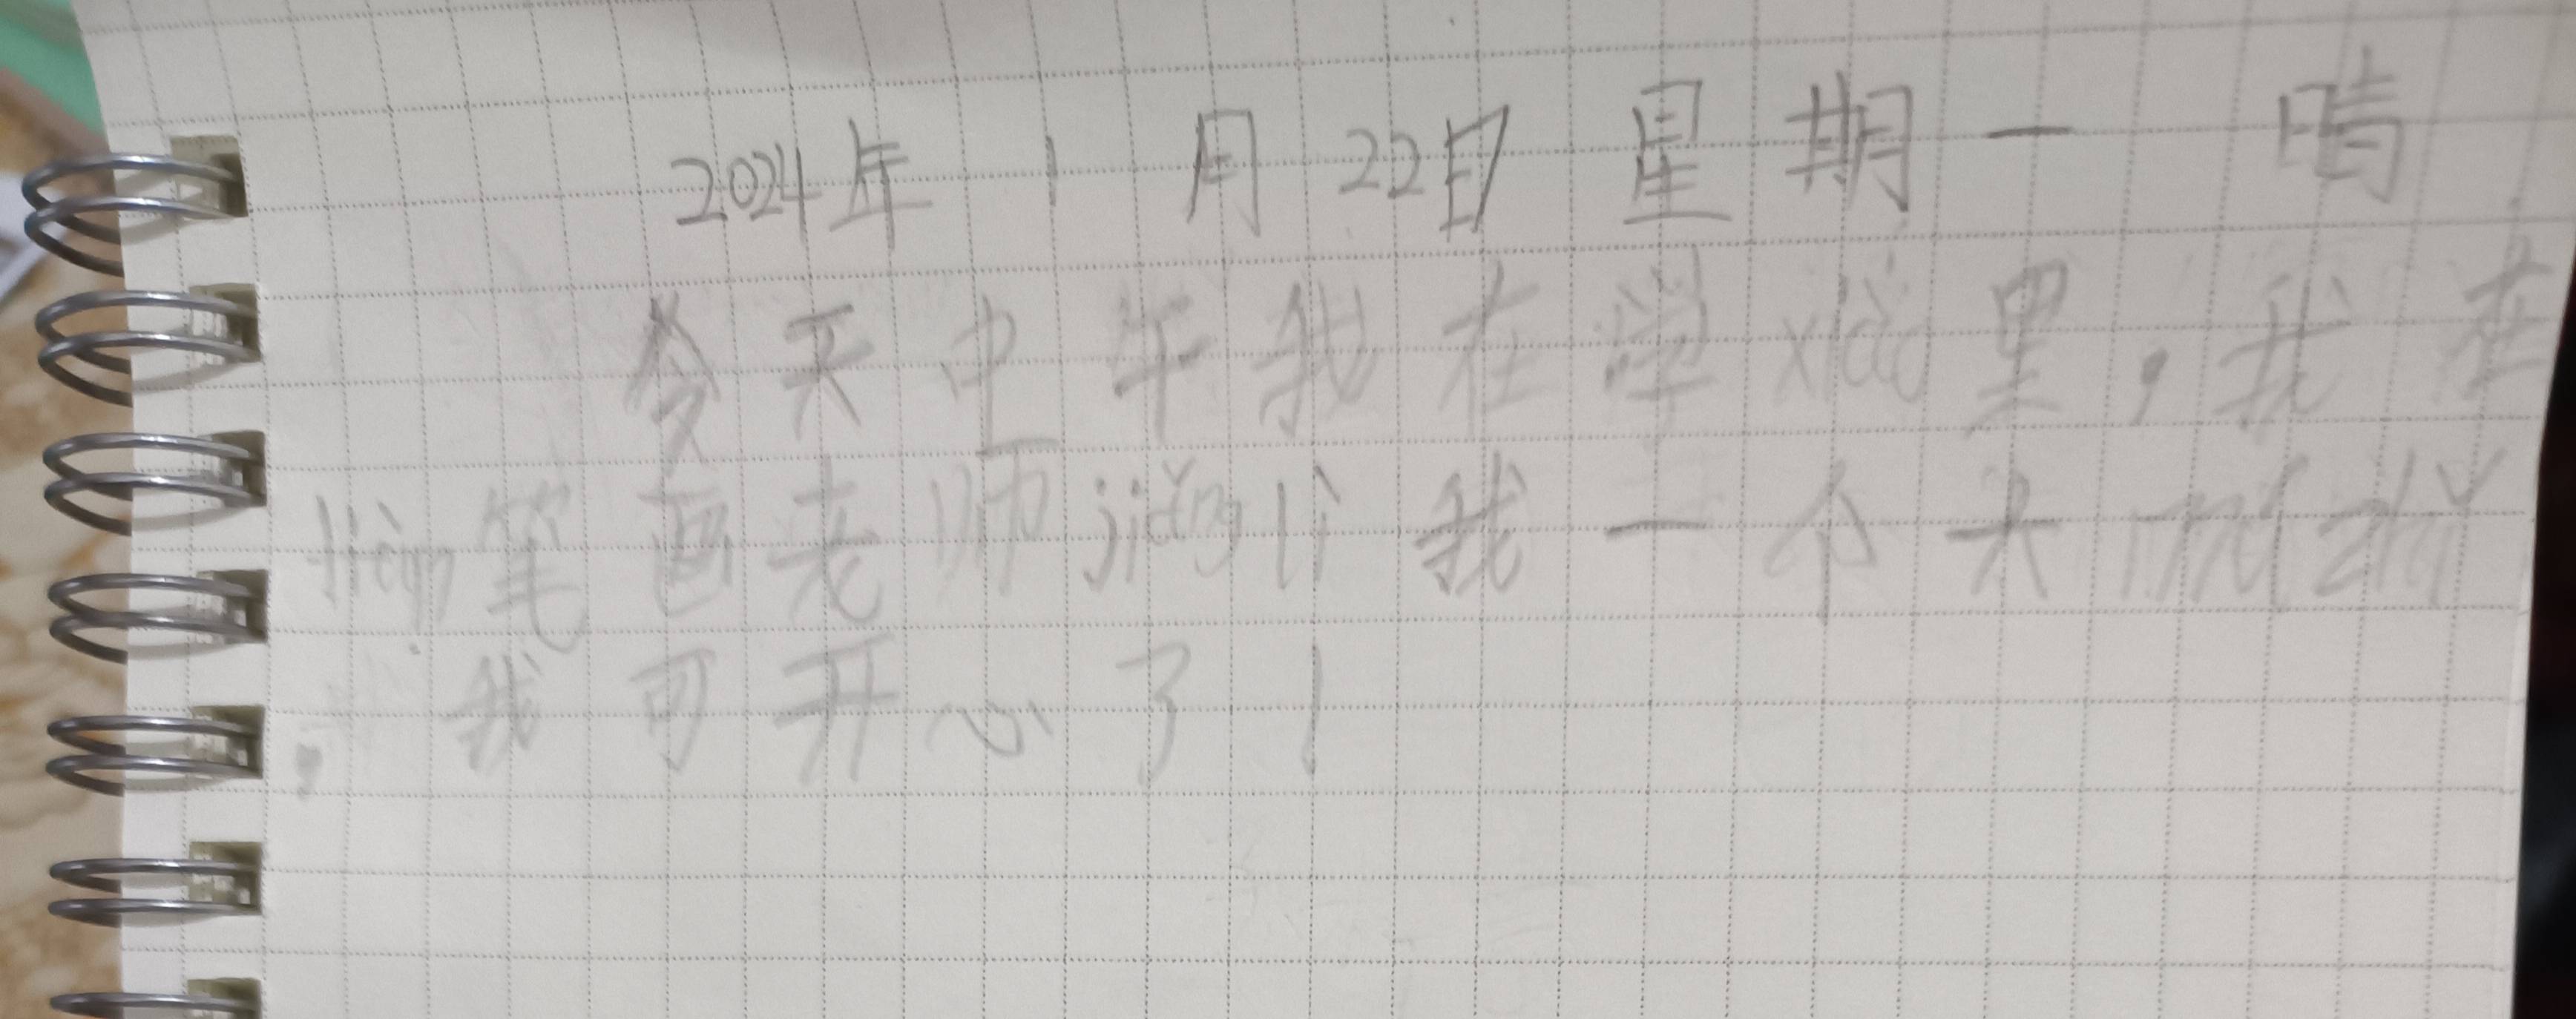 2024年1月22日 星期一 晴
今天中午我在学xiào里，我在
liàn笔画老师jiǎng lì我一个大mǔ zhǐ
，我可开心了！